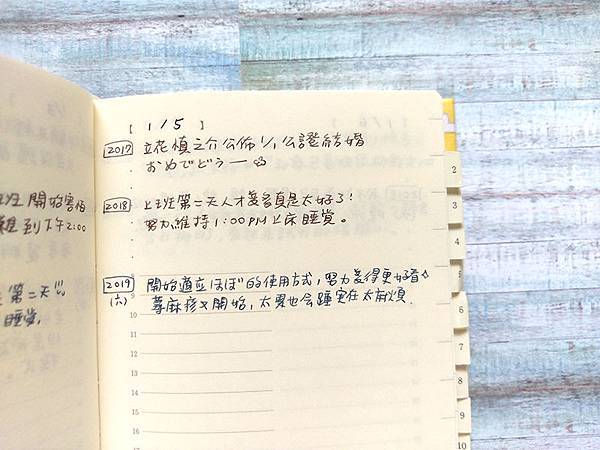 班 開始害怕
想到下午2:00
第二天
睡覺.
[ 1/5 ]
2017 立花慎之介公佈1/1公證結婚
おめでどうー
2018 上班第二天人才薈 真是太好了!
努力維持1:00PM上床睡覺。
2019 開始適應ほぼ的使用方式,努力變得更好看
(六) 蕁麻疹又開始,太累也會腫實在太麻煩.
9
10
11
12
13
14
15
16
2
3
4
5
6
7
8
9
10